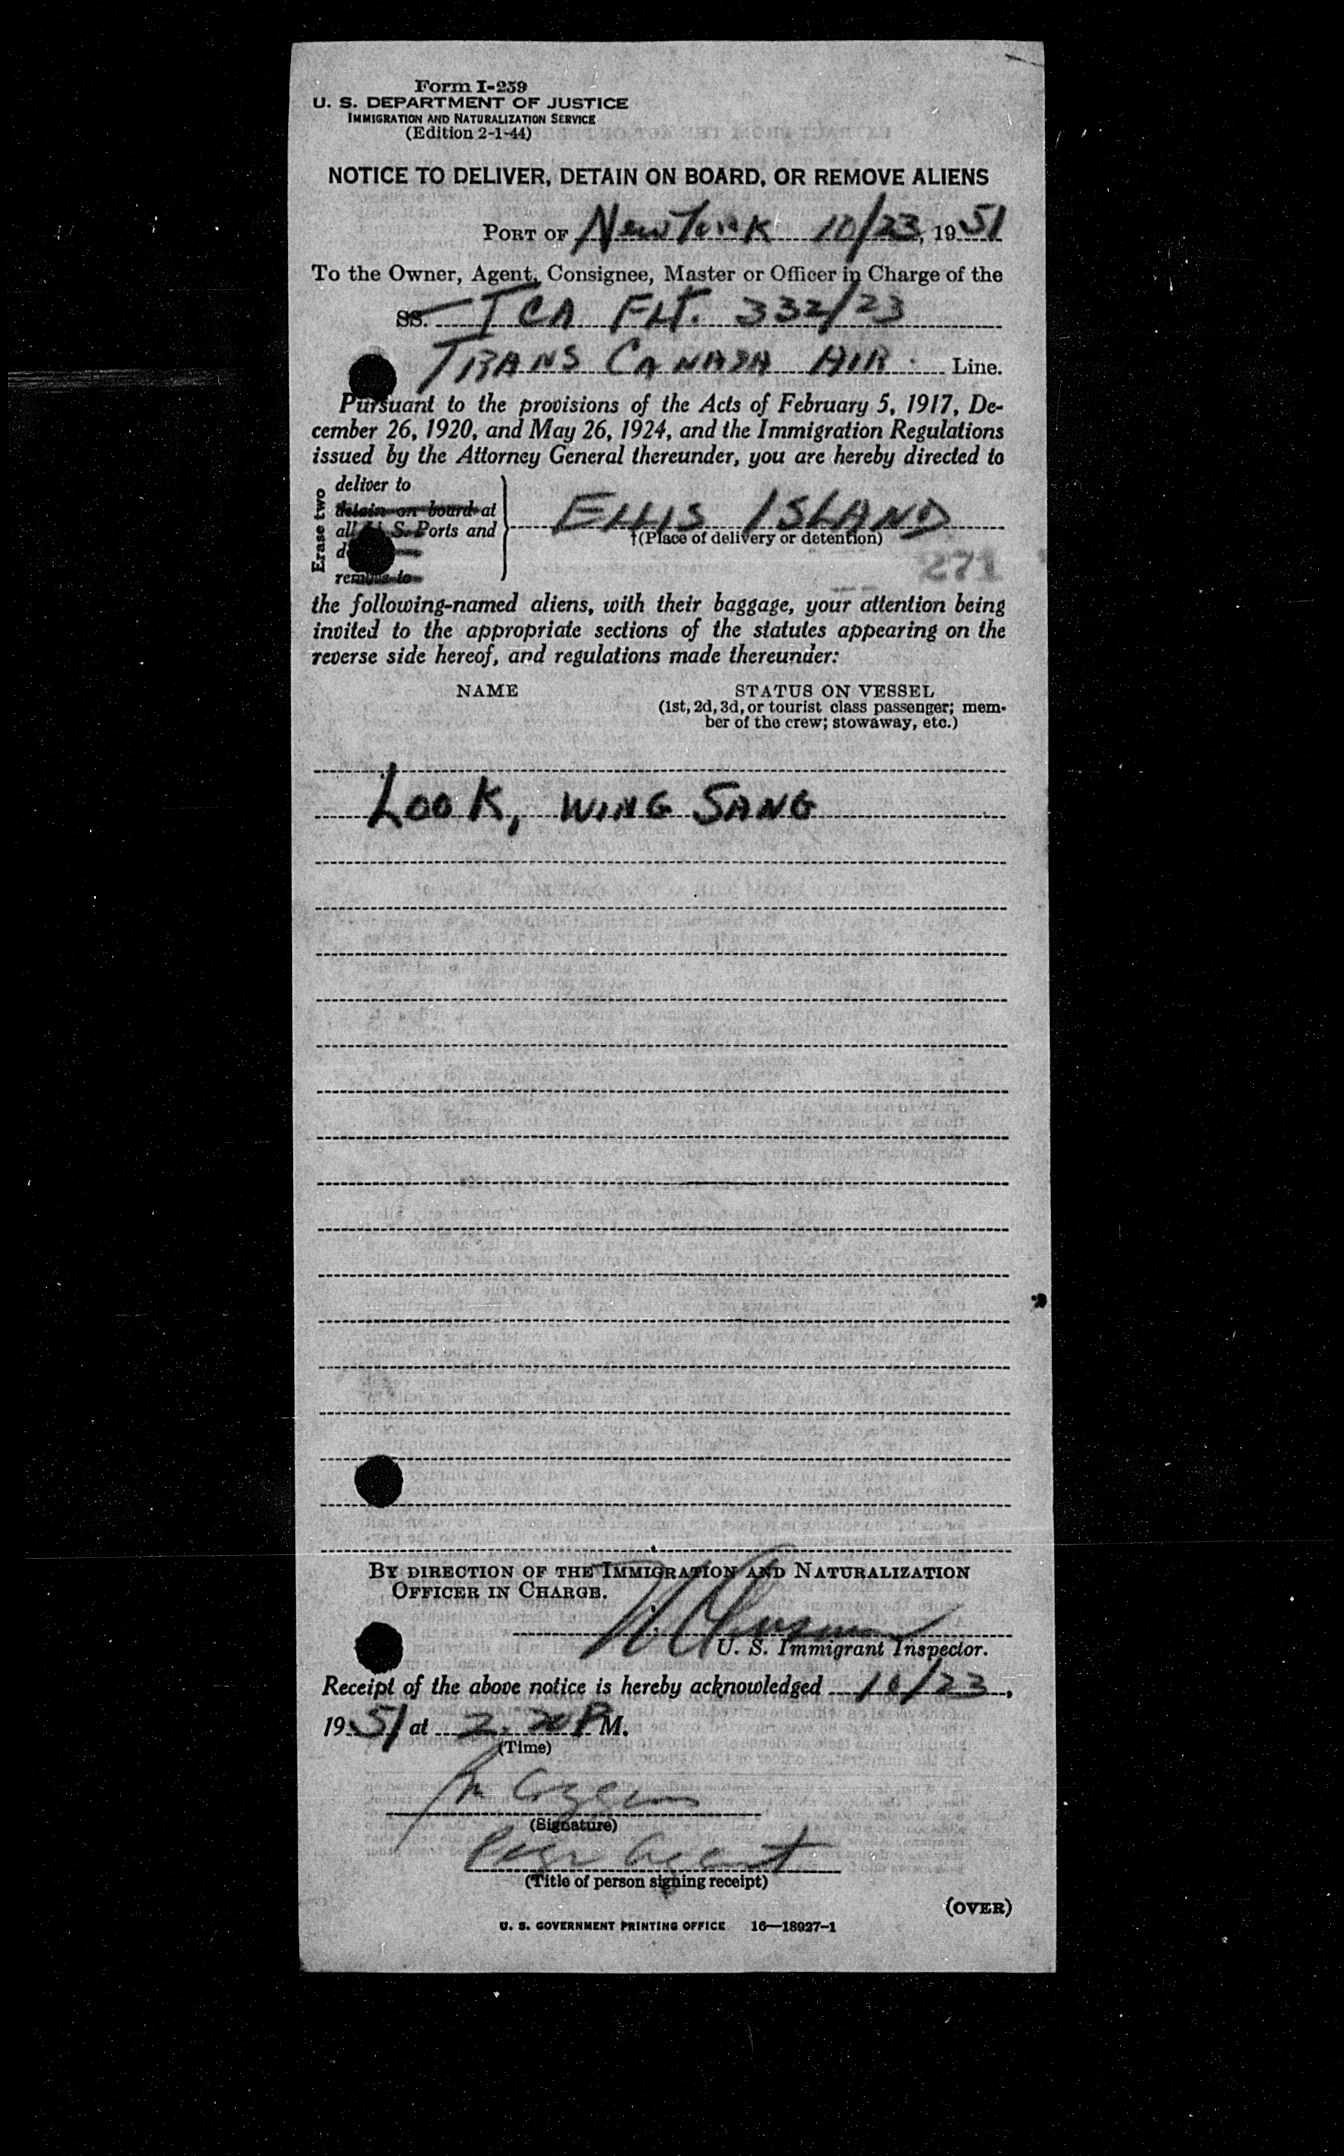 Form I-259
U. S. DEPARTMENT OF JUSTICE
IMMIGRATION AND NATURALIZATION SERVICE
(Edition 2-1-44)
NOTICE TO DELIVER, DETAIN ON BOARD, OR REMOVE ALIENS
PORT OF New York 10/23, 1951
To the Owner, Agent, Consignee, Master or Officer in Charge of the
SS. TCA FLT. 332/23
TRANS CANADA AIR Line.
Pursuant to the provisions of the Acts of February 5, 1917, De-
cember 26, 1920, and May 26, 1924, and the Immigration Regulations
issued by the Attorney General thereunder, you are hereby directed to
Erase two
deliver to
detain on board at
all U. S. Ports and
remove to
ELLIS ISLAND
†(Place of delivery or detention)
271
the following-named aliens, with their baggage, your attention being
invited to the appropriate sections of the statutes appearing on the
reverse side hereof, and regulations made thereunder:
NAME STATUS ON VESSEL
(1st, 2d, 3d, or tourist class passenger; mem-
ber of the crew; stowaway, etc.)
LOOK, WING SANG
BY DIRECTION OF THE IMMIGRATION AND NATURALIZATION
OFFICER IN CHARGE.
U. S. Immigrant Inspector.
Receipt of the above notice is hereby acknowledged 10/23,
1951 at 2.20 P M.
(Time)
(Signature)
Agent
(Title of person signing receipt)
(OVER)
U. S. GOVERNMENT PRINTING OFFICE 16—18927-1